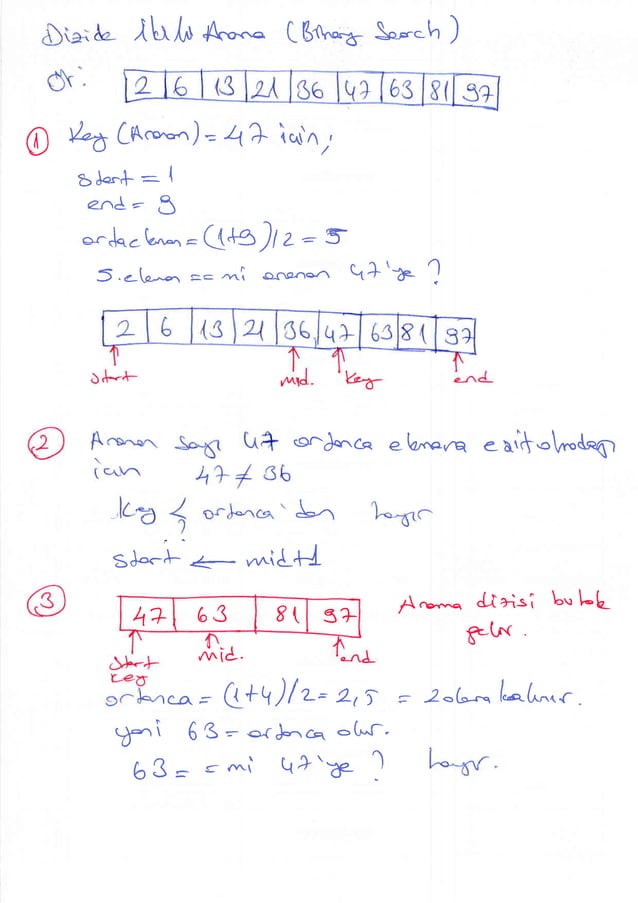 Dizide İkili Arama (Binary Search)
Ör: 2 6 13 21 36 47 63 81 97
1 Key (Aranan) = 47 için;
start = 1
end = 9
ortadeleman = (1+9)/2 = 5
5. eleman == mi aranan 47'ye ?
2 6 13 21 36 47 63 81 97
start mid. key end
2 Aranan sayı 47 ortanca elemana eşit olmadığı
için 47 ≠ 36
key < ortanca'dan hayır
?
start ← mid+1
3 47 63 81 97 Arama dizisi bu hale
gelir.
start mid. end
key
ortanca = (1+4)/2 = 2,5 = 2 olarak alınır.
yani 63 = ortanca olur.
63 == mi 47'ye ? hayır.